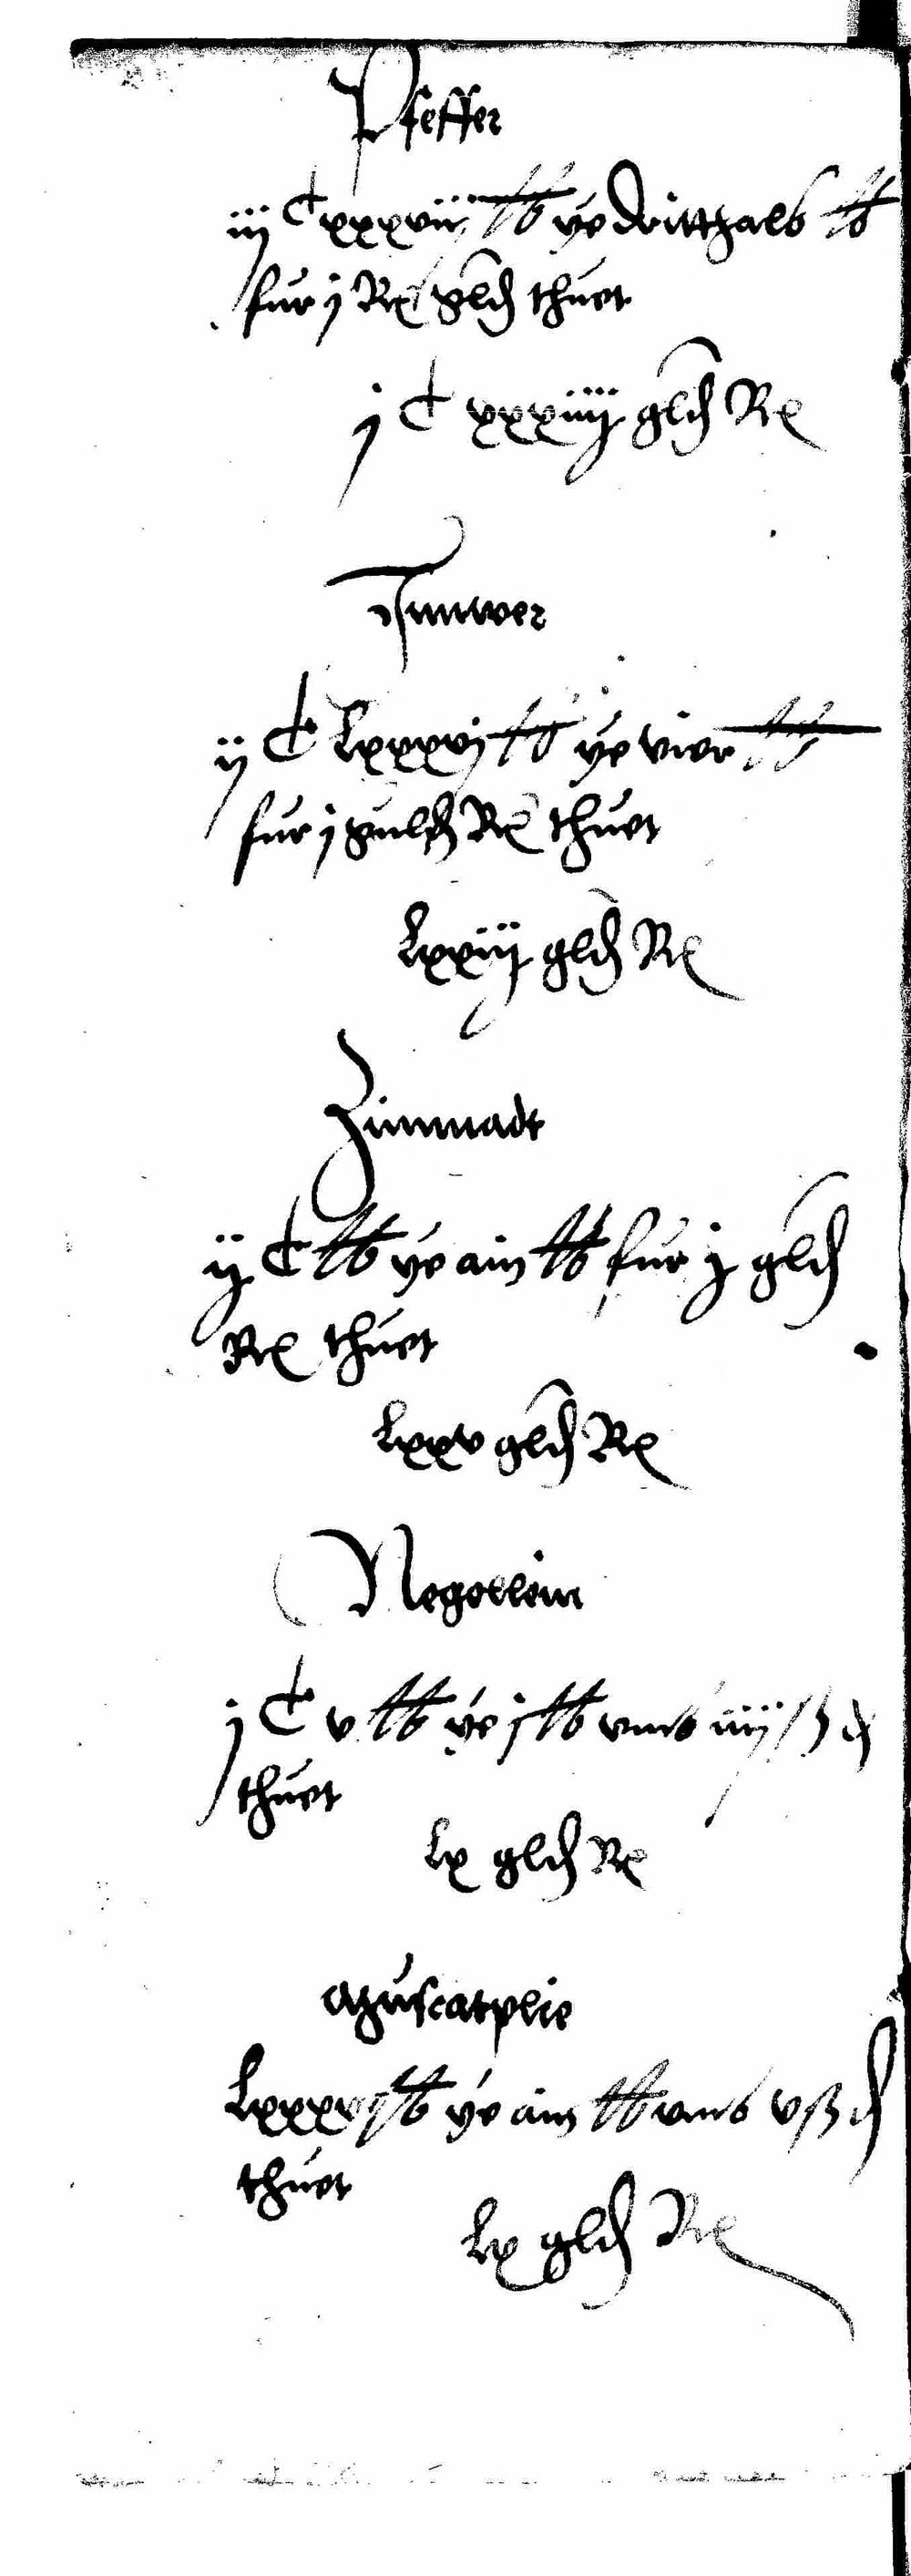 Pfeffer
iij C xxxviij lb ye dritthalb lb
fur j Rx gld thuet
j C xxxiiij gld Rx
Imwer
ij C Lxxxvj lb ye vier lb
fur j guld Rx thuet
Lxxiij gld Rx
Zimmadt
ij C lb ye ain lb fur j gld
Rx thuet
Lxxv gld Rx
Negellein
j C v lb ye j lb umb iiij ß d
thuet
Lx gld Rx
Muscatplie
Lxxxvj lb ye ain lb umb v ß d
thuet
Lx gld Rx